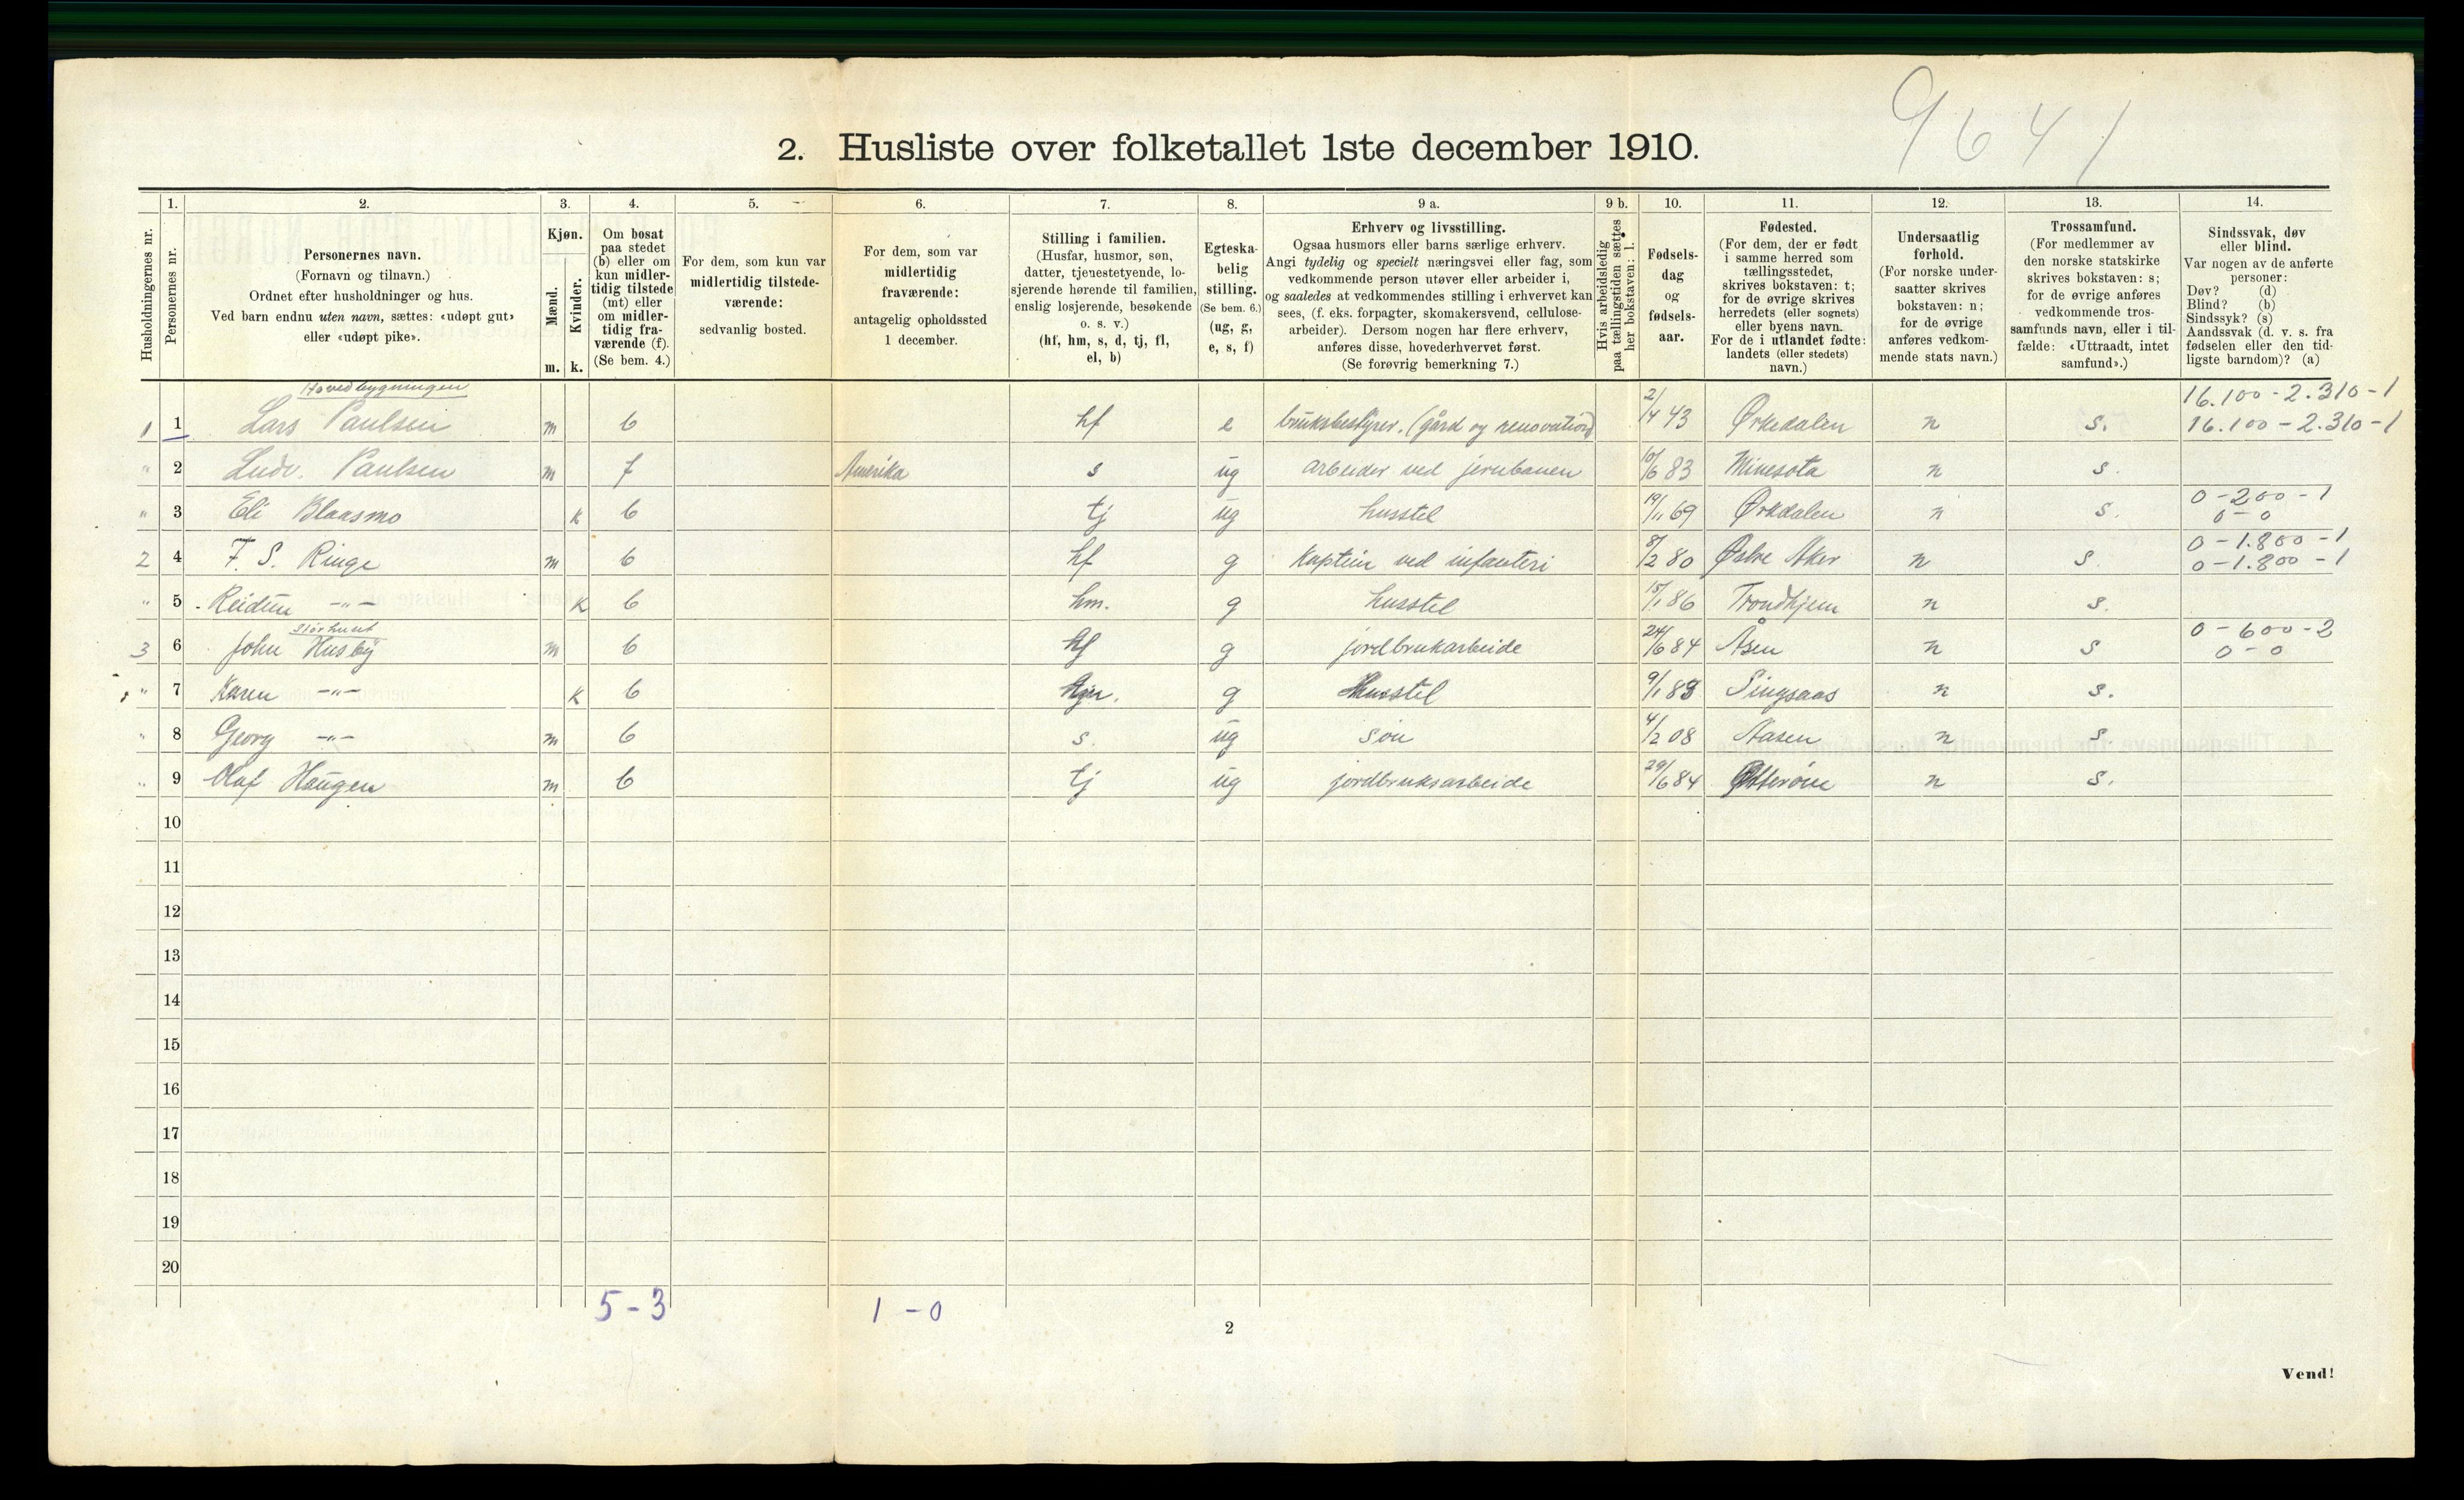 9641
2. Husliste over folketallet 1ste december 1910.
1. 2. 3. 4. 5. 6. 7. 8. 9 a. 9 b. 10. 11. 12. 13. 14.
Husholdningernes nr.
Personernes nr.
Personernes navn.
(Fornavn og tilnavn.)
Ordnet efter husholdninger og hus.
Ved barn endnu uten navn, sættes: «udøpt gut»
eller «udøpt pike».
Kjøn.
Mænd.
Kvinder.
m. k.
Om bosat
paa stedet
(b) eller om
kun midler-
tidig tilstede
(mt) eller
om midler-
tidig fra-
værende (f).
(Se bem. 4.)
For dem, som kun var
midlertidig tilstede-
værende:
sedvanlig bosted.
For dem, som var
midlertidig
fraværende:
antagelig opholdssted
1 december.
Stilling i familien.
(Husfar, husmor, søn,
datter, tjenestetyende, lo-
sjerende hørende til familien,
enslig losjerende, besøkende
o. s. v.)
(hf, hm, s, d, tj, fl,
el, b)
Egteska-
belig
stilling.
(Se bem. 6.)
(ug, g,
e, s, f)
Erhverv og livsstilling.
Ogsaa husmors eller barns særlige erhverv.
Angi tydelig og specielt næringsvei eller fag, som
vedkommende person utøver eller arbeider i,
og saaledes at vedkommendes stilling i erhvervet kan
sees, (f. eks. forpagter, skomakersvend, cellulose-
arbeider). Dersom nogen har flere erhverv,
anføres disse, hovederhvervet først.
(Se forøvrig bemerkning 7.)
Hvis arbeidsledig
paa tællingstiden sættes
her bokstaven: l.
Fødsels-
dag
og
fødsels-
aar.
Fødested.
(For dem, der er født
i samme herred som
tællingsstedet,
skrives bokstaven: t;
for de øvrige skrives
herredets (eller sognets)
eller byens navn.
For de i utlandet fødte:
landets (eller stedets)
navn.)
Undersaatlig
forhold.
(For norske under-
saatter skrives
bokstaven: n;
for de øvrige
anføres vedkom-
mende stats navn.)
Trossamfund.
(For medlemmer av
den norske statskirke
skrives bokstaven: s;
for de øvrige anføres
vedkommende tros-
samfunds navn, eller i til-
fælde: «Uttraadt, intet
samfund».)
Sindssvak, døv
eller blind.
Var nogen av de anførte
personer:
Døv? (d)
Blind? (b)
Sindssyk? (s)
Aandssvak (d. v. s. fra
fødselen eller den tid-
ligste barndom)? (a)
Hovedbygningen
16.100 - 2.310 - 1
1 1 Lars Paulsen m b hf e bruksbestyrer. (gård og renovation) 2/4 43 Ørkedalen n s. 16.100 - 2.310 - 1
" 2 Ludv. Paulsen m f Amerika s ug arbeider ved jernbanen 10/6 83 Minesota n s.
0 - 200 - 1
" 3 Eli Blaasmo k b tj ug husstel 19/11 69 Ørkdalen n s. 0 - 0
0 - 1.800 - 1
2 4 F. S. Ringe m b hf g Kaptein ved infanteri 8/2 80 Østre Aker n s 0 - 1.800 - 1
" 5 Reidun -"- k b hm. g husstel 15/1 86 Trondhjem n s.
0 - 600 - 2
3 6 John Husby m b hf g jordbrukarbeide 24/6 84 Åsen n s 0 - 0
" 7 Karen -"- k b g Husstel 9/1 Singsaas n s.
" 8 Georg -"- m b s. ug søn 4/2 08 Aasen n s
" 9 Olaf Haugen m b tj ug jordbruksarbeide 29/6 84 n s.
10
11
12
13
14
15
16
17
18
19
20
5 - 3 1 - 0
2
Vend!